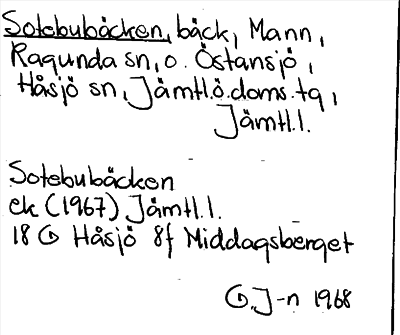 Sotebubäcken, bäck, Mann,
Ragunda sn, o. Östansjö,
Håsjö sn, Jämtl.ö.doms.tg,
Jämtl.l.
Sotebubäcken
ek (1967) Jämtl.l.
18 G Håsjö 8f Middagsberget
G.J-n 1968